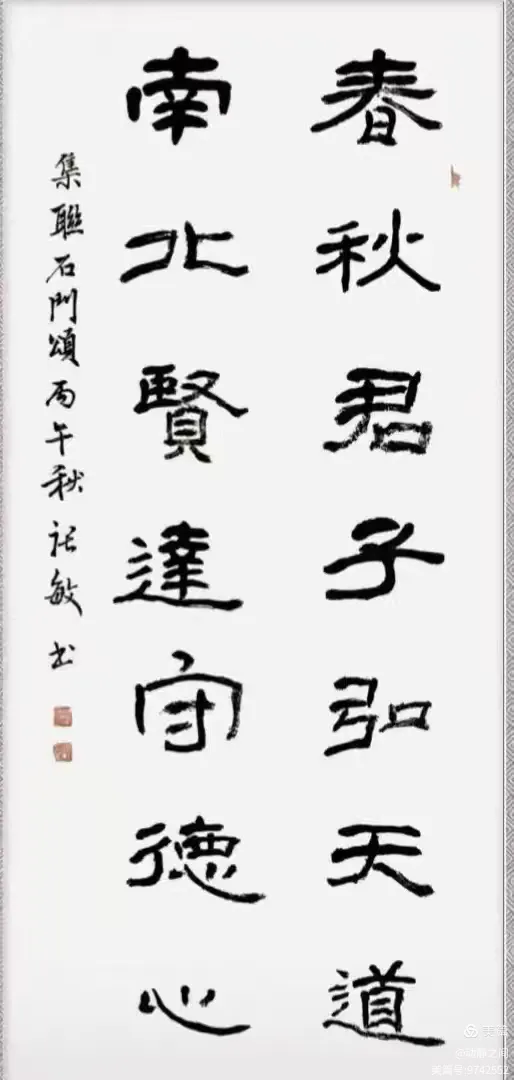 春秋君子弘天道
南北賢達守德心
集聯石門頌丙午秋張敏书
美篇
@动静之间
美篇号:9742552